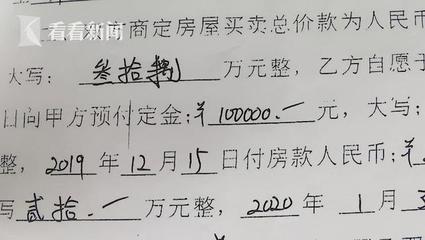 看看新闻
商定房屋买卖总价款为人民币
大写: 叁拾捌 万元整,乙方自愿于
日向甲方预付定金:¥ 100000.- 元,大写:
整, 2019 年 12 月 15 日付房款人民币:¥
写 贰拾.- 万元整, 2020 年 1 月